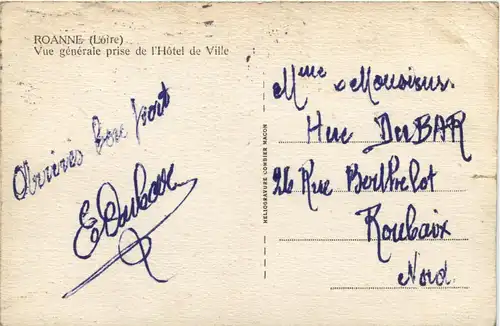 ROANNE (Loire)
Vue générale prise de l'Hôtel de Ville
Arrivés bon port
E Dubar
HELIOGRAVURE COMBIER MACON
Mme & Monsieur
Huc DuBAR
26 Rue Berthelot
Roubaix
Nord.